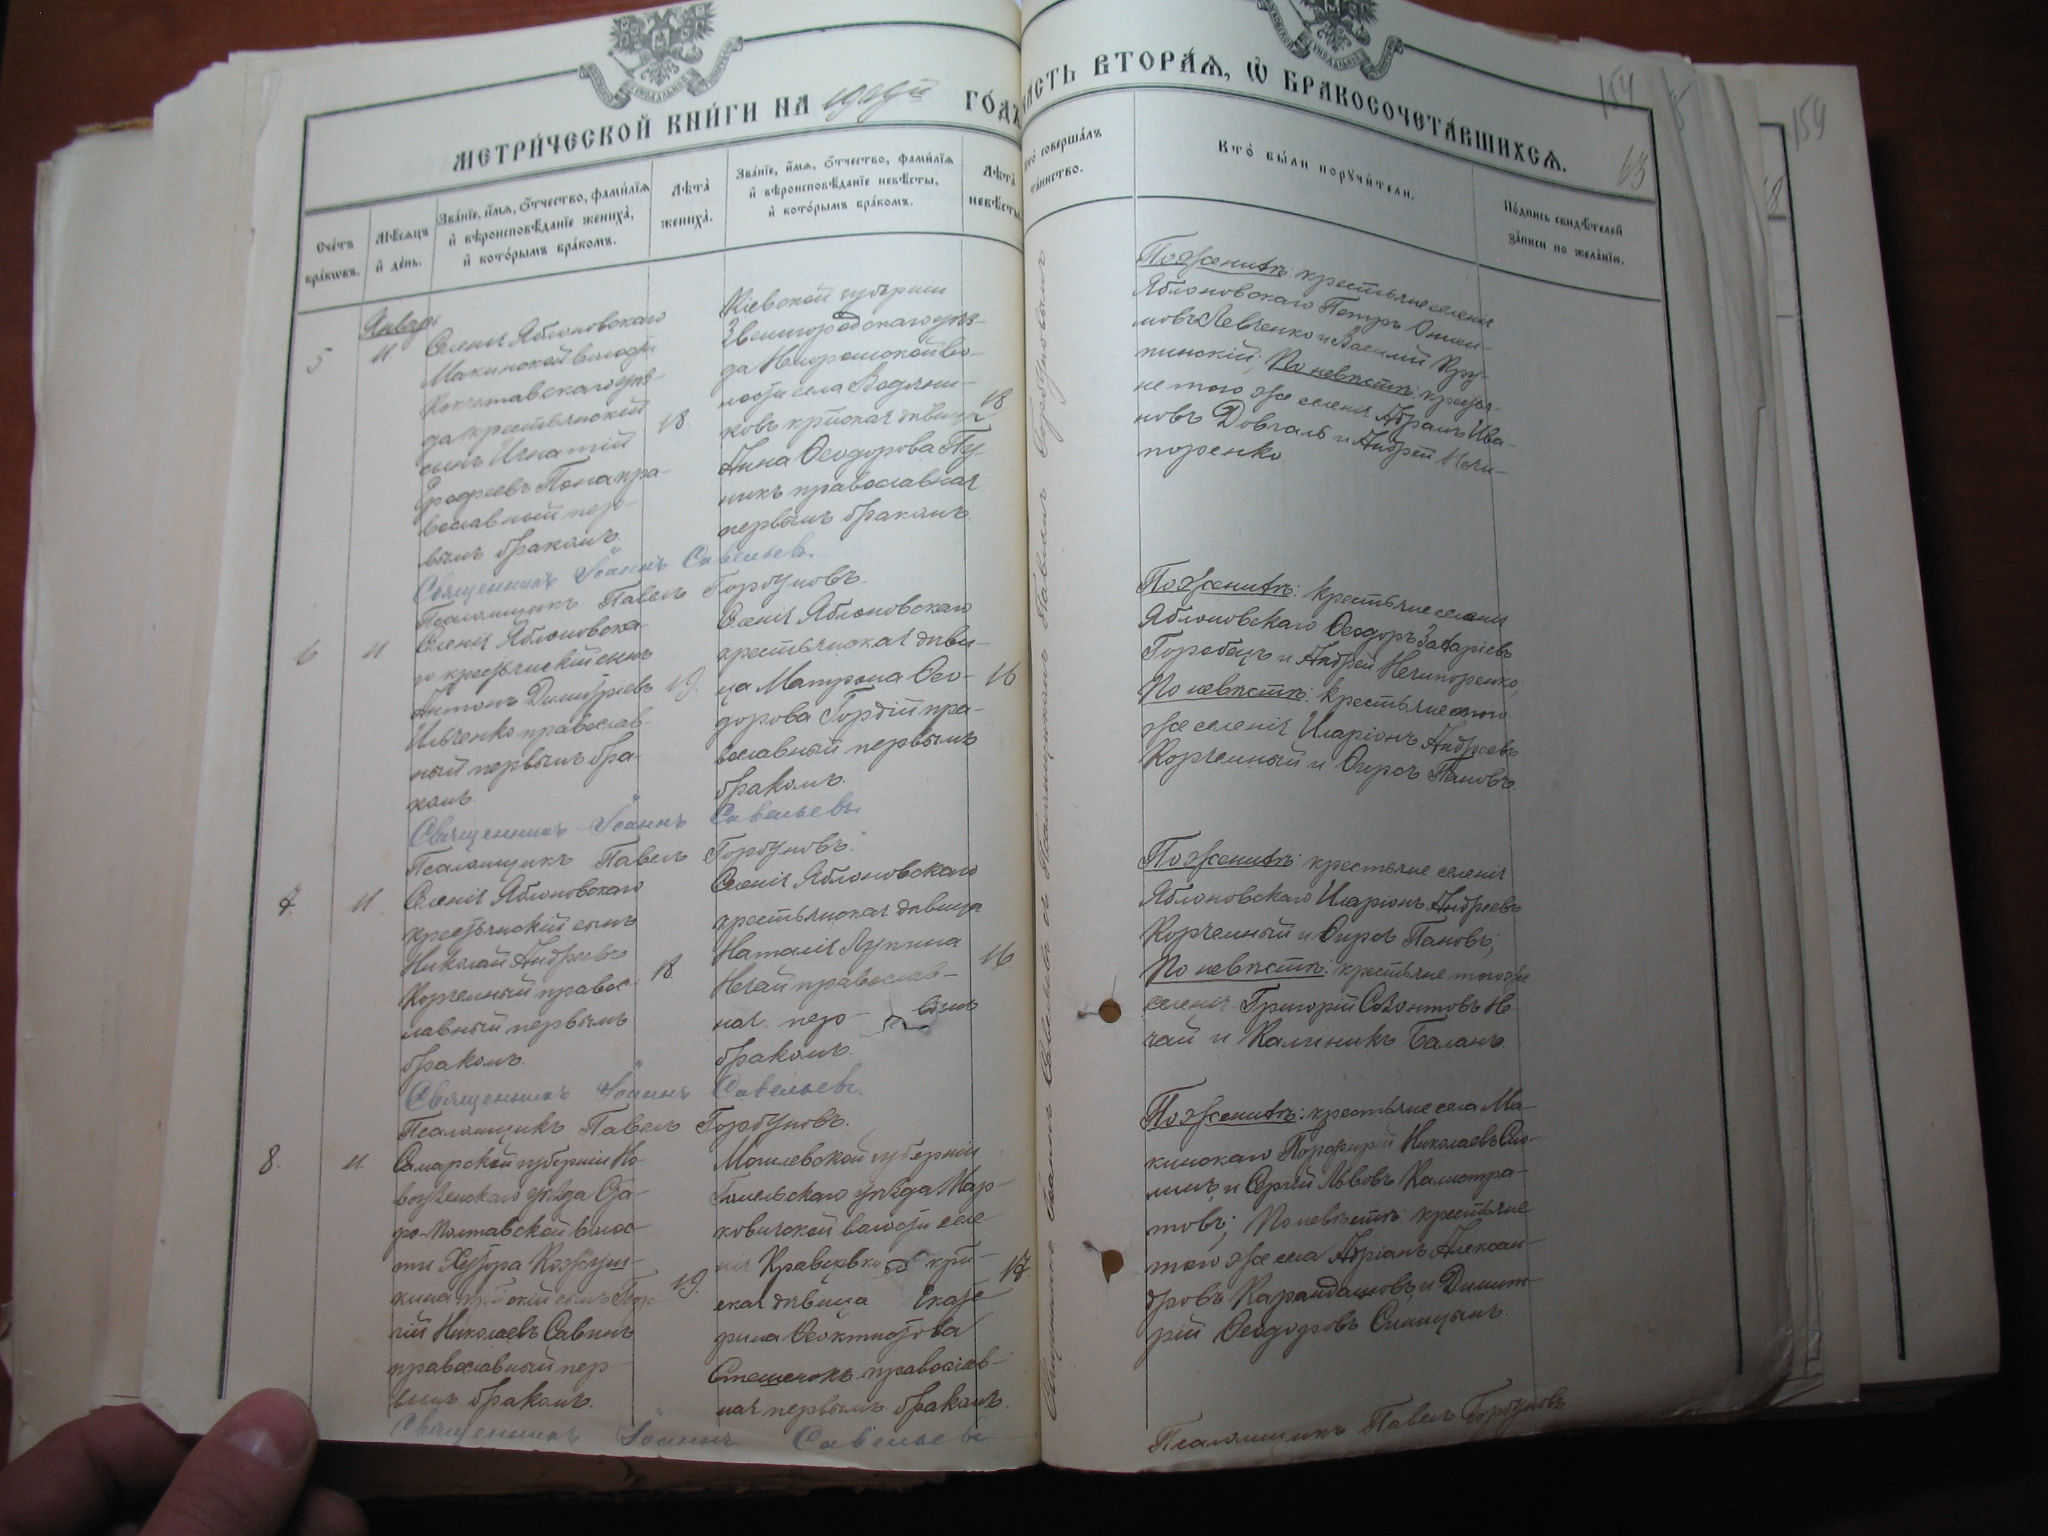 МЕТРИ́ЧЕСКОЙ КНИ́ГИ НА 1909й ГО́ДЪ
ЧА́СТЬ ВТОРА́Я, Ѡ БРАКОСОЧЕТА́ВШИХСЯ.
154
63
159
Сче́тъ бра́ковъ.
Мѣ́сяцъ и де́нь.
Зва́нїе, и́мя, о́тчество, фами́лїя
и вѣроисповѣ́данїе жениха́,
и кото́рымъ бра́комъ.
Лѣта́ жениха́.
Зва́нїе, и́мя, о́тчество, фами́лїя
и вѣроисповѣ́данїе невѣ́сты,
и кото́рымъ бра́комъ.
Лѣта́ невѣ́сты.
Кто́ соверша́лъ
та́инство.
Кто́ бы́ли поручи́тели.
По́дпись свидѣ́телей
за́писи по жела́нїю.
Январь
5
11
Селенія Яблоновскаго
Макинской волости
Кокчетавскаго уѣз-
да крестьянскій
сынъ Игнатій
Ерофеевъ Попа пра-
вославный пер-
вымъ бракомъ.
18.
Кіевской губерніи
Звенигородскаго уѣз-
да
лости села Водяни-
ковъ кр῀ская дѣвица
Анна Ѳеодорова
никъ православная
первымъ бракомъ.
18.
По женихѣ: крестьяне селенія
Яблоновскаго Петръ
мовъ Левченко и Василій Кру-
пинскій; По невѣстѣ: крестья-
не того же селенія Абрамъ Ива-
новъ Довгаль и Андрей Нечи-
поренко.
Священникъ Іоаннъ Савельевъ.
Псаломщикъ Павелъ Горбуновъ.
6
11
Селенія Яблоновска-
го крестьянскій сынъ
Антонъ Димитріевъ
Ильченко православ-
ный первымъ бра-
комъ.
19.
Селенія Яблоновскаго
крестьянская дѣви-
ца Матрона Ѳео-
дорова Гордій пра-
вославный первымъ
бракомъ.
16
По женихѣ: крестьяне селенія
Яблоновскаго Ѳеодоръ Захаріевъ
Горобецъ и Андрей Нечипоренко;
По невѣстѣ: крестьяне того
же селенія Иларіонъ Андреевъ
Корчемный и Ѳирсъ Пановъ.
Священникъ Іоаннъ Савельевъ.
Псаломщикъ Павелъ Горбуновъ.
7.
11.
Селенія Яблоновскаго
крестьянскій сынъ
Николай Андреевъ
Корчемный правос-
лавный первымъ
бракомъ.
18.
Селенія Яблоновскаго
крестьянская дѣвица
Наталія Лукина
Нечай православ-
ная пер- вымъ
бракомъ.
16
По женихѣ: крестьяне селенія
Яблоновскаго Иларіонъ Андреевъ
Корчемный и Ѳирсъ Пановъ;
По невѣстѣ: крестьяне того же
селенія Григорій Созонтовъ Не-
чай и Калиникъ Баланъ.
Священникъ Іоаннъ Савельевъ.
Псаломщикъ Павелъ Горбуновъ.
8.
11.
Самарской губерніи Но-
воузенскаго уѣзда Ста-
ро-Полтавской волос-
ти Хутора Кожуш-
кина кр῀скій сынъ Геор-
гій Николаевъ Савинъ
православный пер-
вымъ бракомъ.
19.
Могилевской губерніи
Гомельскаго уѣзда Мар-
ковичской волости селе-
нія Кравцовки кр῀-
ская дѣвица Екате-
рина Ѳеоктистова
Стешенокъ православ-
ная первымъ бракомъ.
17.
По женихѣ: крестьяне села Ма-
кинскаго Порфирій Николаевъ
и Сергій Львовъ Калистра-
товъ; По невѣстѣ: крестьяне
того же села Адріанъ Алексан-
дровъ Карандашовъ и Димит-
рій Ѳеодоровъ Синицынъ.
Священникъ Іоаннъ Савельевъ
Псаломщикъ Павелъ Горбуновъ
Священникъ Іоаннъ Савельевъ съ Псаломщикомъ Павломъ Горбуновымъ